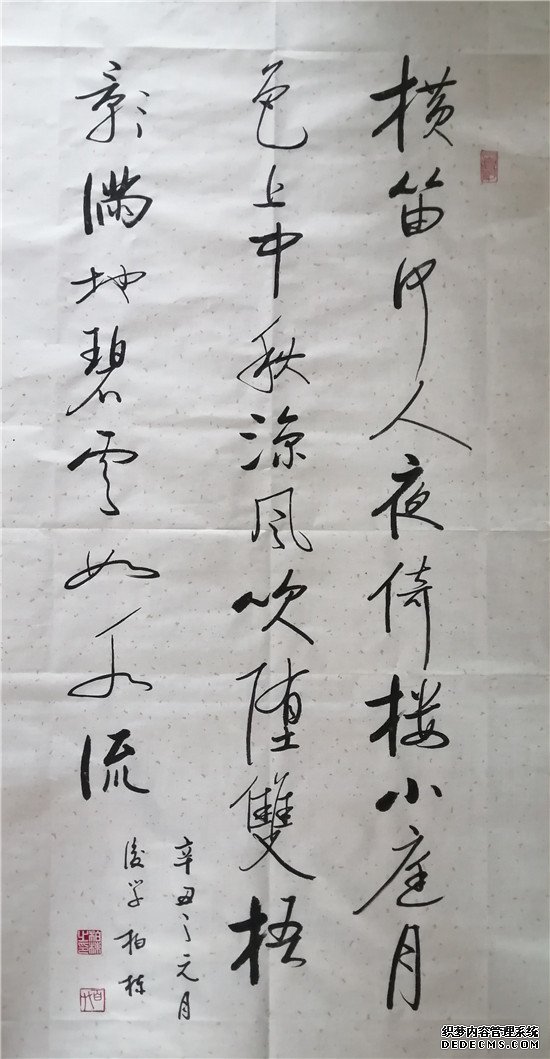 横笛何人夜倚楼小庭月
色上中秋凉风吹堕雙梧
影满地碧云如水流
辛丑之元月
後学柏栋
织梦内容管理系统
DEDECMS.COM